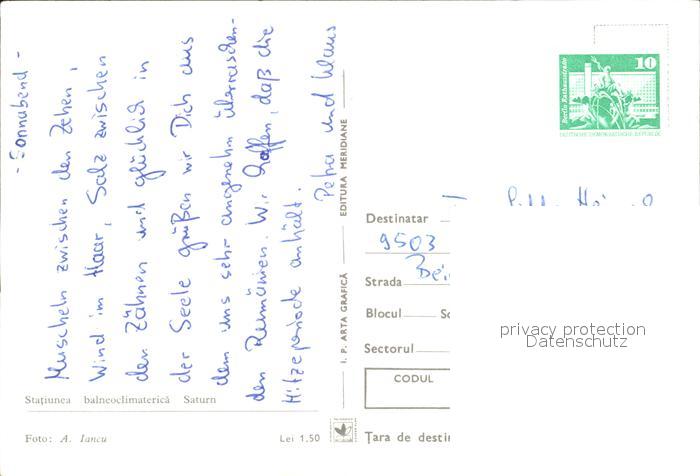 - Sonnabend -
Muscheln zwischen den Zehen,
Wind im Haar, Salz zwischen
den Zähnen und glücklich in
der Seele grüßen wir Dich aus
dem uns sehr angenehm überraschen-
den Rumänien. Wir hoffen, daß die
Hitzeperiode anhält.
Petra und Klaus
Stațiunea balneoclimaterică Saturn
Foto: A. Iancu
Lei 1,50
I. P. ARTA GRAFICĂ EDITURA MERIDIANE
10
Berlin Rathausstraße
DEUTSCHE DEMOKRATISCHE REPUBLIK
Destinatar
9503
Strada
Blocul
Sc
Sectorul
CODUL
Țara de desti
privacy protection
Datenschutz